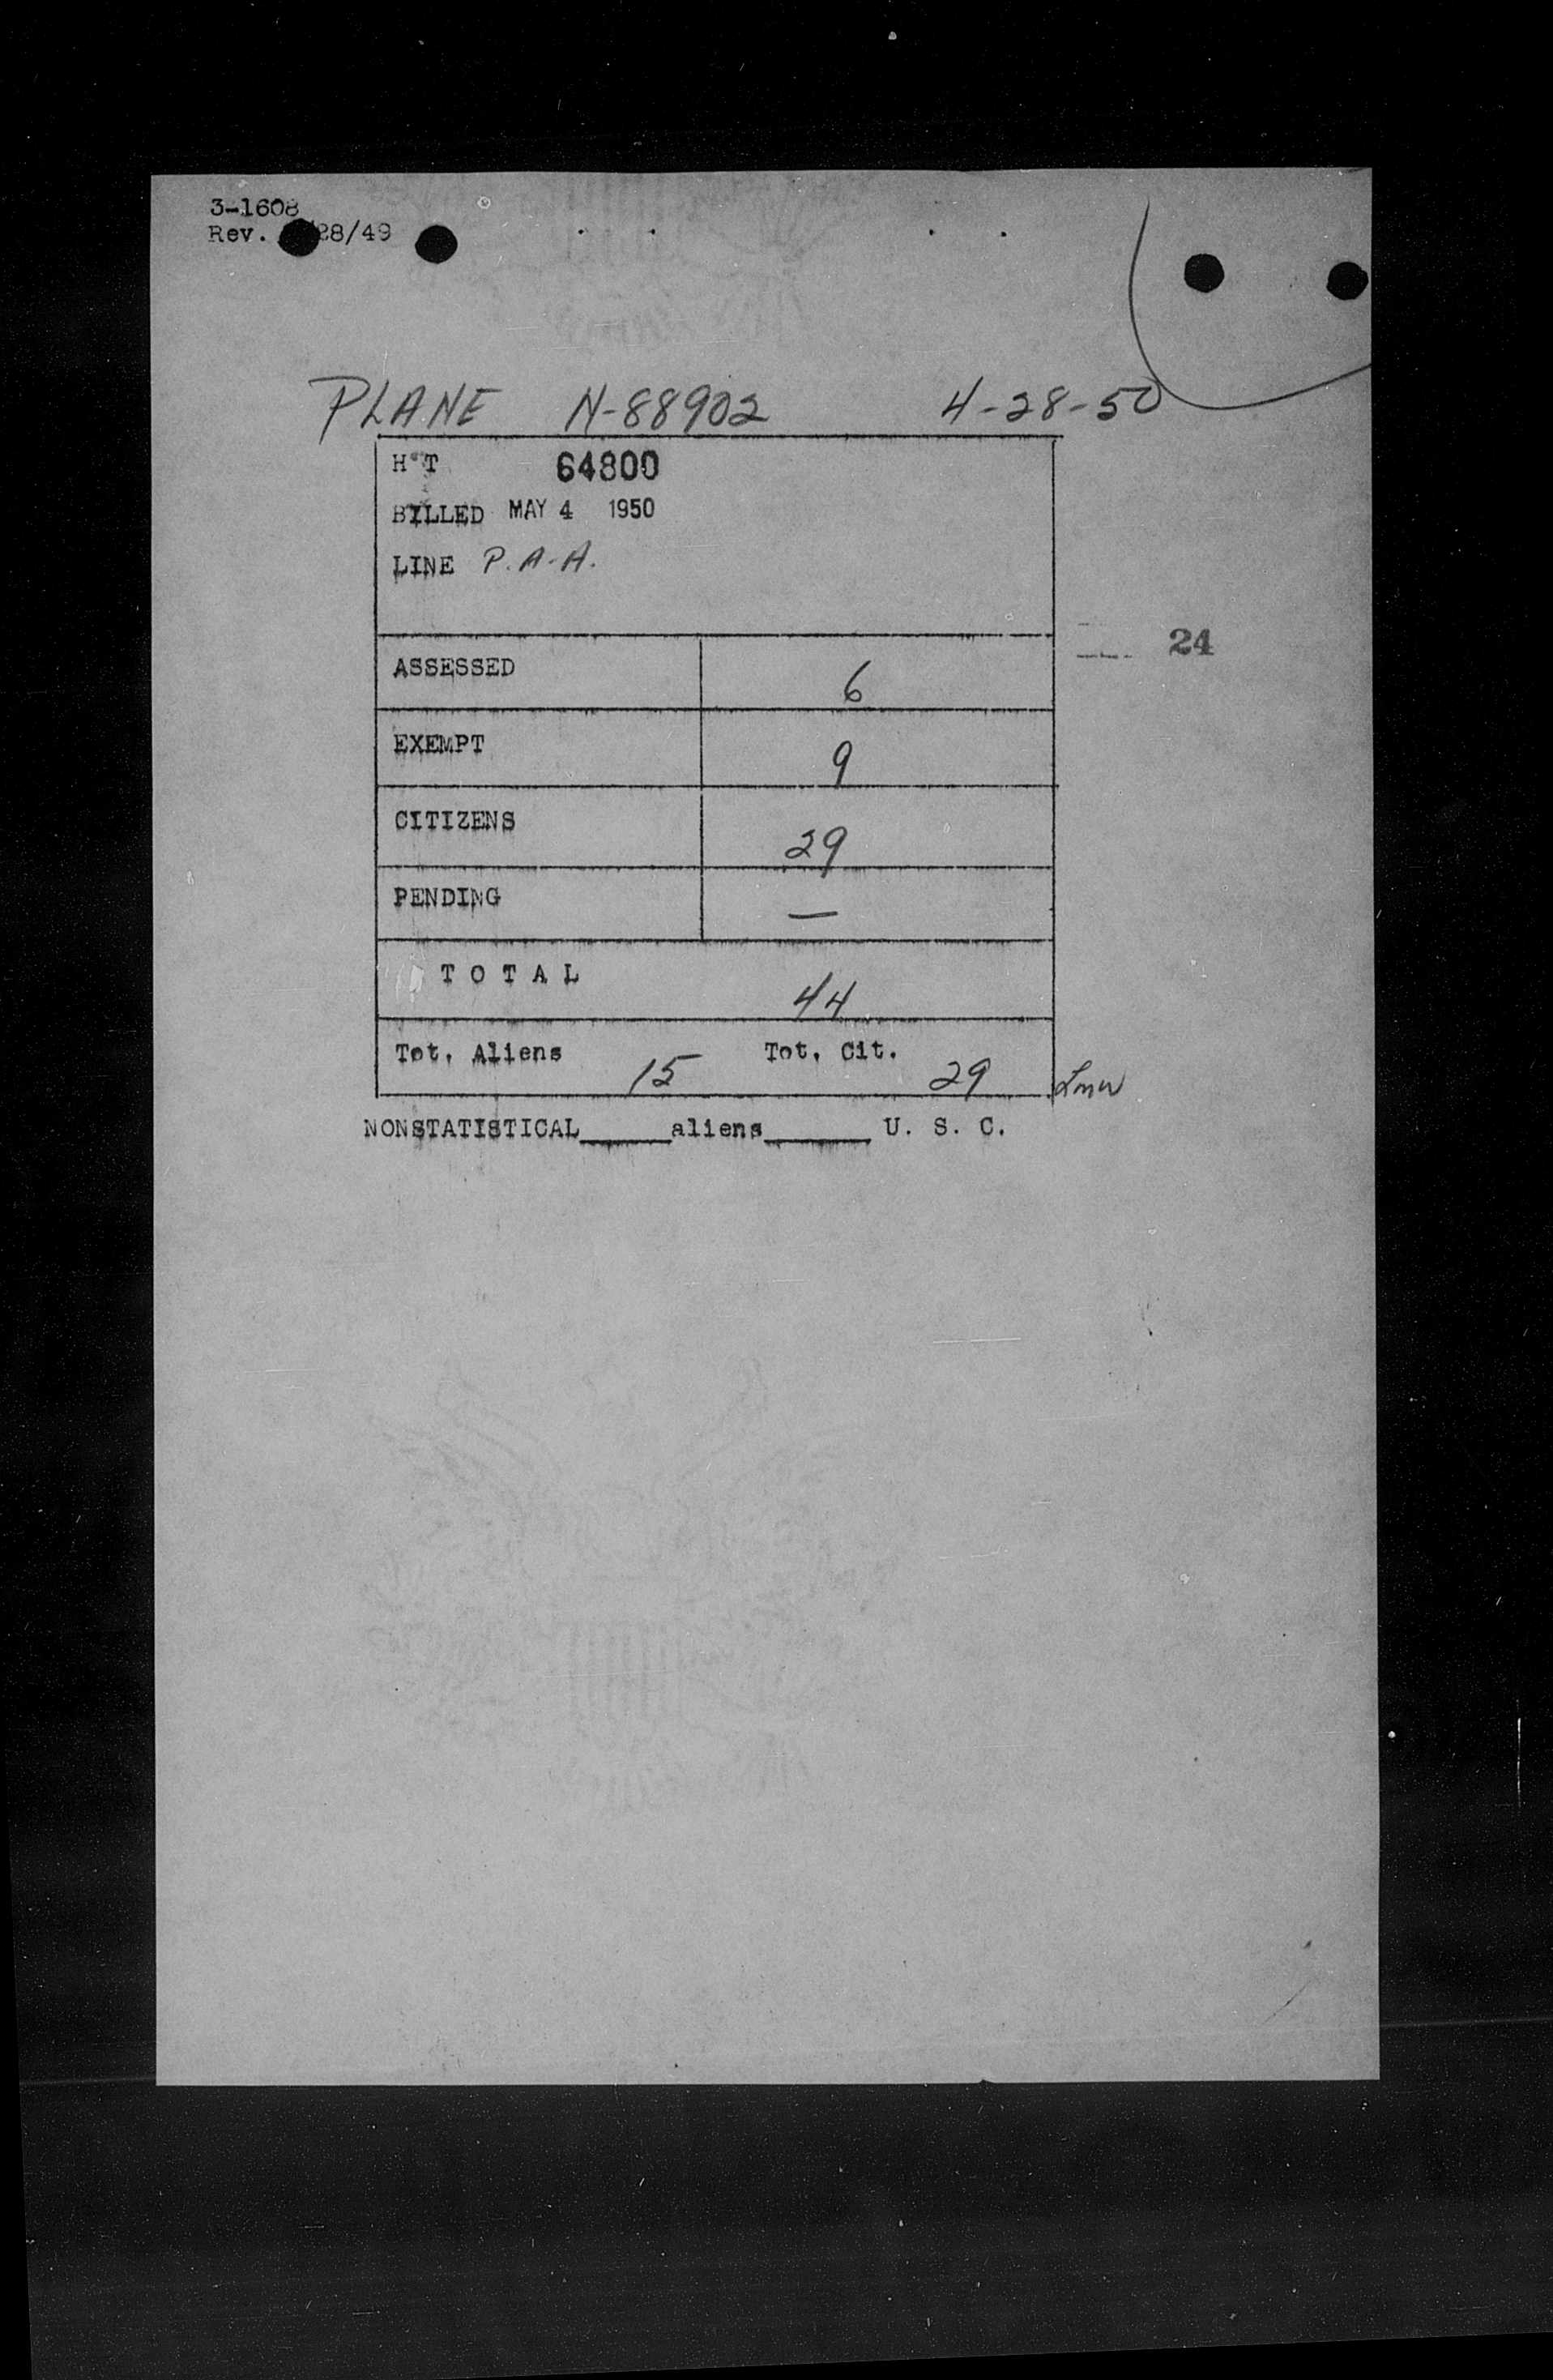 3-1608
Rev. 28/49
PLANE N-88902 4-28-50
H T 64800
BILLED MAY 4 1950
LINE P.A.A.
24
ASSESSED 6
EXEMPT 9
CITIZENS 29
PENDING —
TOTAL 44
Tot. Aliens 15 Tot. Cit. 29
NONSTATISTICAL______aliens_______ U. S. C.